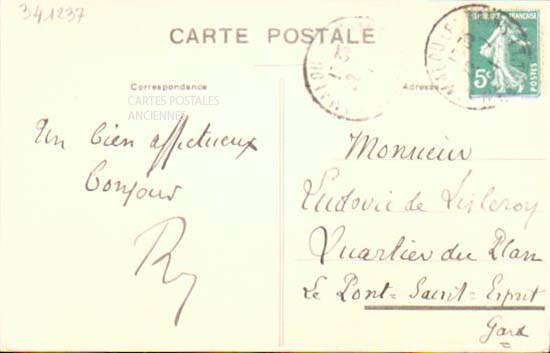 341237
CARTE POSTALE
Correspondance
Adresse
CARTES POSTALES
ANCIENNES
RÉPUBLIQUE FRANÇAISE
5c
POSTES
Un bien affectueux
bonjour
Monsieur
Ludovic de Lisleroy
Quartier du Plan
Le Pont=Saint=Esprit
Gard